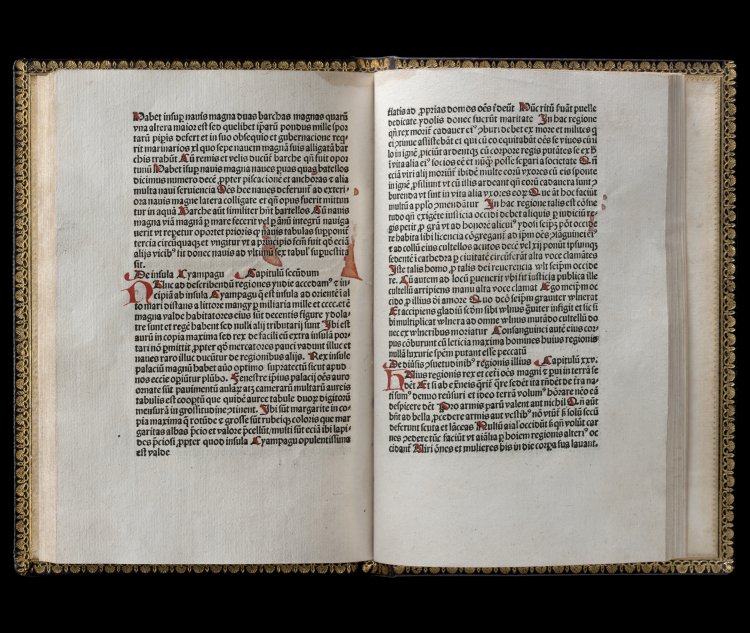 Habet insup̱ nauis magna duas barchas magnas quarū
vna altera maior est sed quelibet ip̄arū pondus mille spor
tarū pip̱is defert et in suo obsequio et gubernacione req̄
rit marinarios xl quo sepe nauem magnā suis alligatā bar
chis trahūt Cū remis et velis ducūt barche qn̄ fuit opor
tunū Habet insup̱ nauis magna naues p̱uas quas batellos
dicimus numero decē ꝓpter piscacione et anchoras ⁊ alia
multa naui seruiencia Oēs hee naues deferunt̄ ad exteri/
ora nauis magne latera colligate et qn̄ opus fuerit mittun
tur in aquā Barche aūt similiter hn̄t bartellos Cū nauis
magna viā magnā p̱ mare fecerit vel p̱ annū integrū nauiga
uerit vt repetur oportet prioris nauis tabulas supponi
tercia circūquaq̄ et vngitur vt a principio
alijs vicib꜒ fit donec nauis ad vltimū sex tabul꜒ supuestita
sit.
De insula Cyampagu Capitulū secūdum
Hunc ad describendū regiones yndie accedam꜒ ⁊ in
cipiā ab insula Cyampagu q̄ est insula ad orientē ī al
to mari distans a littore mangy p̱ miliaria mille et ccccc est
magna valde habitatores eius sūt decentis figure ydola
tre sunt et regē habent sed nulli alij tributarij sunt Ibi est
aurū in copia maxima sed rex de facili eū extra insulā por
tari nō ꝑmittit ꝓpter qd̄ mercatores pauci vadunt illuc et
naues raro illuc ducūtur de regionibus alijs. Rex insule
palaciū magnū habet auro optimo supratectū sicut apud
nos ecclīe opiūtur plūbo. Fenestre ip̄ius palacij oēs auro
ornate sūt pauimentū aulaꝝ at꜒ camerarū multarū aureis
tabulis est cooptū que quidē auree tabule duoꝝ digitorū
mensurā in grossitudīe ꝯtinent. Ibi sūt margarite in co
pia maxima q̄ rotūde ⁊ grosse sūt rubeiq꜒ coloris que mar
garitas albas p̄cio et valore p̄cellūt multi sūt eciā ibi lapi/
des p̄ciosi ꝓpter quod insula Cyampagu opulentissima
est valde
fiatis ad ꝓprias domos oēs redeūt Nūc ritū fuāt puelle
dedicate ydolis donec fuerūt maritate In hac regione
qn̄ rex morit̄ cadauer ei꜒ ꝯburi debet ex more et milites q
ei ꝯtinue assistebāt et qui cū eo equitabūt oēs se viuos cū il
lo in ignē ꝓiciūt ardentq꜒ cū corpore regis putātes se ex h̄
ī vita alia ei꜒ socios eē et nūq̄ꝫ posse sep̱ari a societate Qn̄
eciā viri alij moriūt̄ ibidē multe eorū vxores cū eis sponte
in ignē ꝓsiliunt vt cū illis ardeant qn̄ eorū cadauera sunt ꝯ
burenda vt sint in vita alia vxores eorꝫ Que at̄ hoc faciūt
multū a pplō ꝯmendātur In hac regione talis est cōsue
tudo qn̄ exigēte iusticia occidi debet aliquis p̱ iudiciū re
gis petit p̱ grā vt ad honorē alicui꜒ ydoli seip̄ꝫ pōt occide
re habita ībi licencia cōgregant̄ ad ip̄m oēs ꝯsaguinei ei꜒
et ad collū eius cultellos acutos decē vel xij ponūt ip̄sumq꜒
sedentē ī cathedra p̱ ciuitatē circūferūt alta voce clamātes
Iste talis homo ꝓ talis dei reuerencia vlt seip̄m occide
re. Cū autem ad locū p̱uenerit vbi fit publica iusticia ille
cultellū arripiens manu alta voce clamat Ego meip̄m oc
cido ꝓ illius di amore Quo dcō seip̄m grauiter wlnerat
Et accipiens gladiū scd̄m sibi wlnus g̱uiter infigit et sic si
bi multiplicat wlnera ad omne wlnus mutādo cultellū do
nec ex wlneribus moriatur Consanguinei autē eius cor/
pus cōburunt cū leticia maxima homines huius regionis
nullā luxurie spēm putant esse peccatū
De diūsis ꝯsuetudinib꜒ regionis illius Capitulū xxv.
Huius regionis rex et ceteri oēs magni ⁊ p̱ui in terra se
dēt Et si ab extraneis querit̄ qr̄e ī terra sedēt ita rn̄dēt de t̄ra na
ti sum꜒ demo reūsuri et ideo terrā volum꜒ hōrare nec eā
despicere dēt Pro armis parū valent aut nichil Qn̄ aūt
ībūt ad bella ꝓcedere armis aut vestib꜒ nō vtūt̄ sꝫ solū secū
deferunt scuta et lāceas Nullū aīal occidūt sꝫ qn̄ volūt car
nes ꝯedere tūc faciūt vt aīalia ꝑ hoiem regionis alteri꜒ oc
cidant̄ Viri oēs et mulieres bis in die corpa sua lauant.